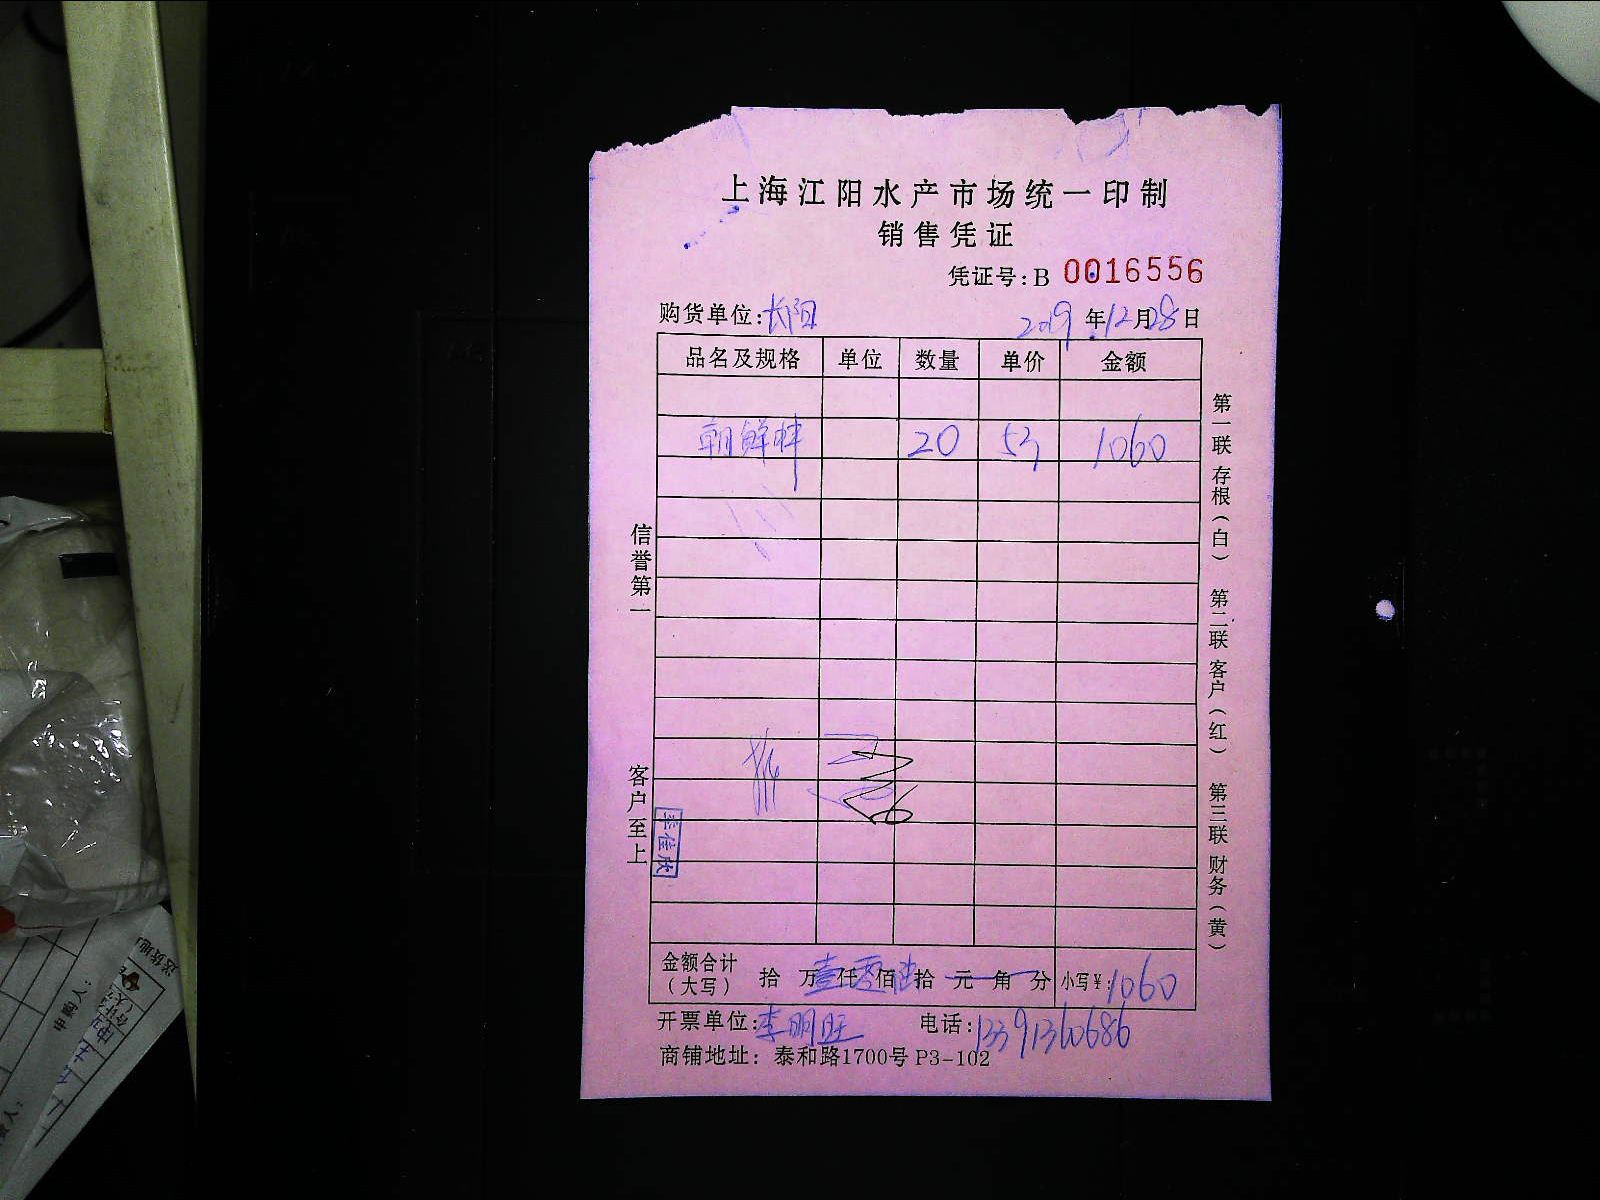 上海江阳水产市场统一印制
销售凭证
凭证号:B 0016556
购货单位:长阳 2019年12月28日
品名及规格 单位 数量 单价 金额
朝鲜蚌 20 53 1060
信誉第一
客户至上
李佳欣
第一联存根(白) 第二联客户(红) 第三联财务(黄)
金额合计(大写) 拾 万壹仟零佰陆拾 元 角 分 小写¥:1060
开票单位:李明旺 电话:13391360686
商铺地址: 泰和路1700号 P3-102
申购人:
送货地